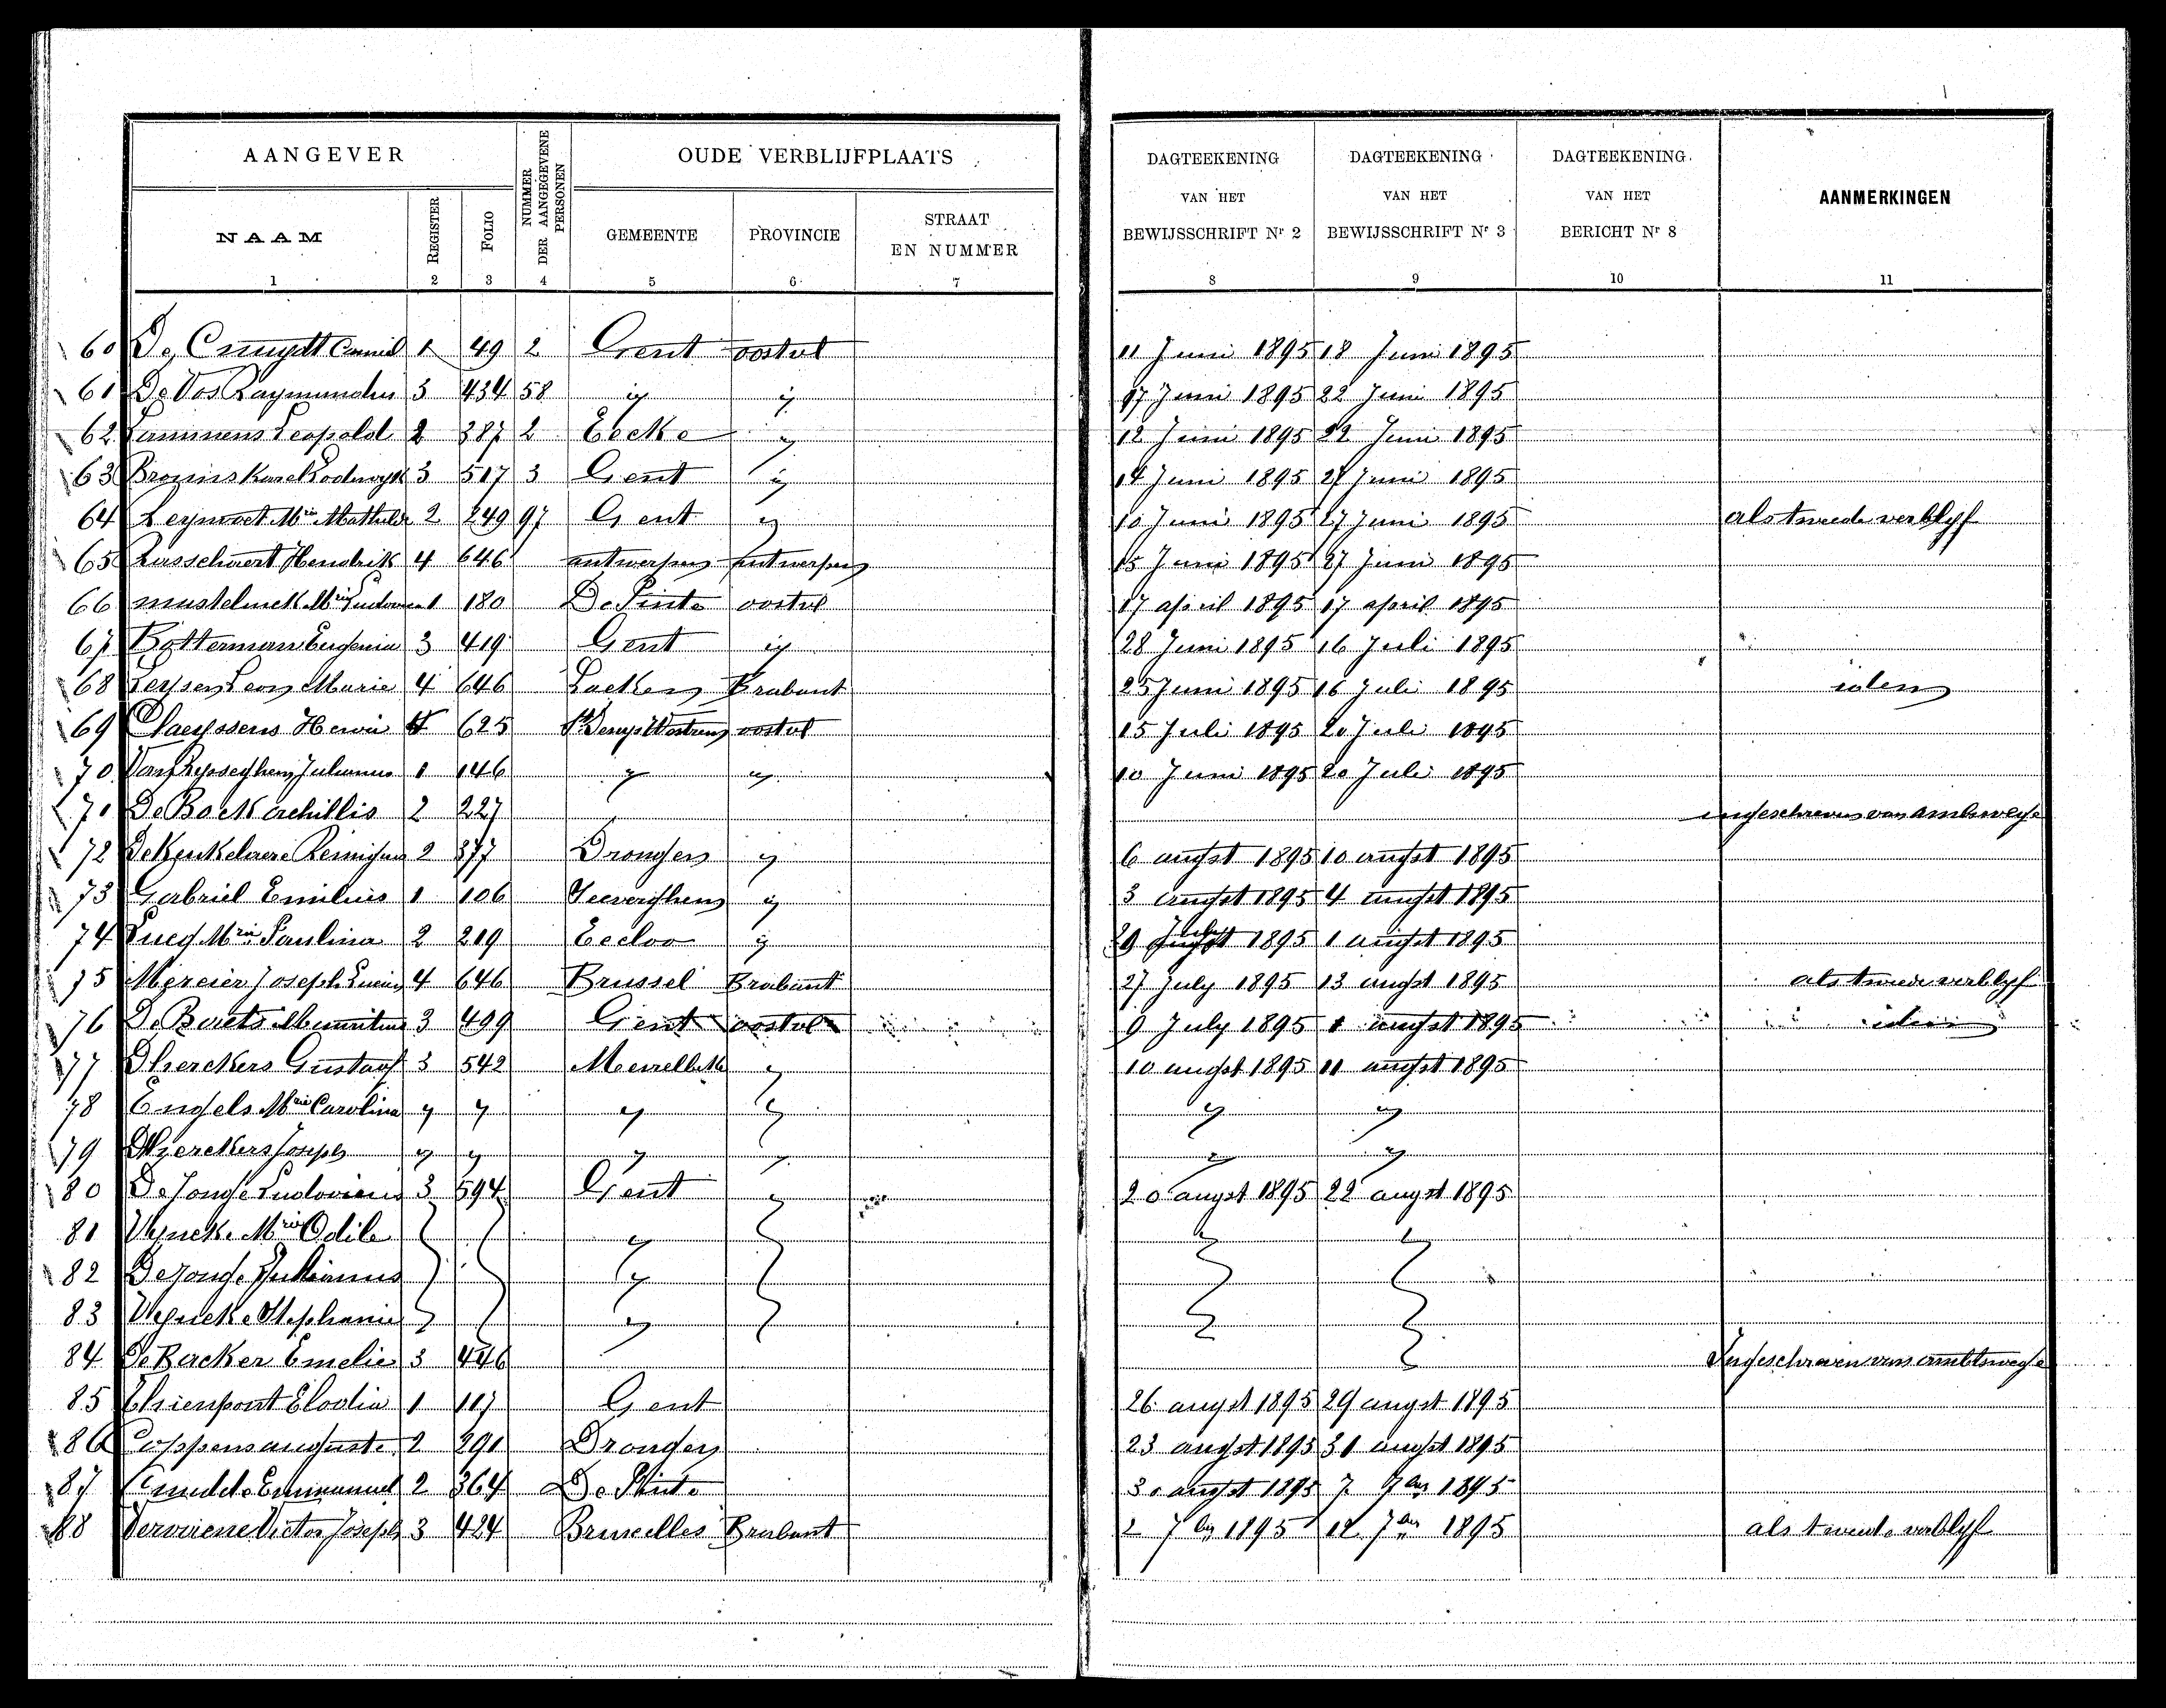 AANGEVER NUMMER DER AANGEGEVENE PERSONEN OUDE VERBLIJFPLAATS DAGTEEKENING VAN HET BEWIJSSCHRIFT Nr 2 DAGTEEKENING VAN HET BEWIJSSCHRIFT Nr 3 DAGTEEKENING VAN HET BERICHT Nr 8 AANMERKINGEN
NAAM REGISTER FOLIO GEMEENTE PROVINCIE STRAAT EN NUMMER
1 2 3 4 5 6 7 8 9 10 11
60 De 1 49 2 Gent oostvl 11 Juni 1895 18 Juni 1895
61 De Vos Raymundus 3 434 58 id id 17 Juni 1895 22 Juni 1895
62 Leopold 2 387 2 Eecke id 12 Juni 1895 22 Juni 1895
63 Karel Lodewyk 3 517 3 Gent id 14 Juni 1895 27 Juni 1895
64 Mie Mathilde 2 249 97 Gent id 10 Juni 1895 27 Juni 1895 als tweede verblyf
65 Russchaert Hendrik 4 646 antwerpen antwerpen 15 Juni 1895 27 Juni 1895
66 Mie 1 180 De Pinte oostvl 17 april 1895 17 april 1895
67 Botterman Eugenia 3 419 Gent id 28 Juni 1895 16 Juli 1895
68 Leon Marie 4 646 Laeken Brabant 25 Juni 1895 16 Juli 1895 idem
69 Claeyssens Henri 4 625 St Denys Westrem oostvl 15 Juli 1895 20 Juli 1895
70 Van Hysseghem Julianus 1 146 id id 10 Juni 1895 20 Juli 1895
70 De Bock Achillis 2 227 ingeschreven van ambswege
72 Dekeukelaere Remigius 2 377 Drongen id 6 augst 1895 10 augst 1895
73 Gabriel Emilius 1 106 Zeeverghem id 3 augst 1895 4 augst 1895
74 Mie Paulina 2 219 Eecloo id 29 July 1895 1 augst 1895
75 Joseph Lucien 4 646 Brussel Brabant 27 July 1895 13 augst 1895 als tweede verblyf
76 De Baets 3 499 Gent oostvl 9 July 1895 1 augst 1895 idem
77 Dherckers Gustaaf 3 542 Meirelbeke id 10 augst 1895 11 augst 1895
78 Engels Mie Carolina id id id id id id
79 Dherckers Joseph id id id id id id
80 De Jonge Ludovicus 3 594 Gent id 20 augst 1895 22 augst 1895
81 Uyncke Mie Odile id
82 De Jonge Julianus id
83 Uyncke Stephanie id
84 De Backer Emelie 3 446 Ingeschreven van ambtswege
85 Thienpont Elodia 1 117 Gent 26 augst 1895 29 augst 1895
86 Coppens auguste 2 291 Drongen 23 augst 1895 31 augst 1895
87 Emmanuel 2 364 De Pinte 30 augst 1895 7 7ber 1895
88 Victor Joseph 3 424 Bruxelles Brabant 2 7ber 1895 12 7ber 1895 als tweede verblyf